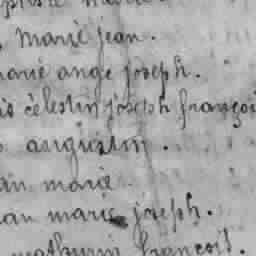 marie jean.
marie ange joseph.
célestin joseph françoi
augustin.
an marie
an marie joseph.
mathurin françois.